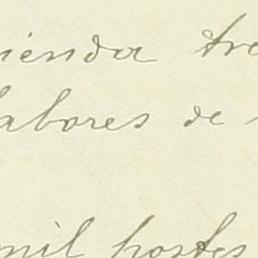 ienda tre
labores de
mil postes